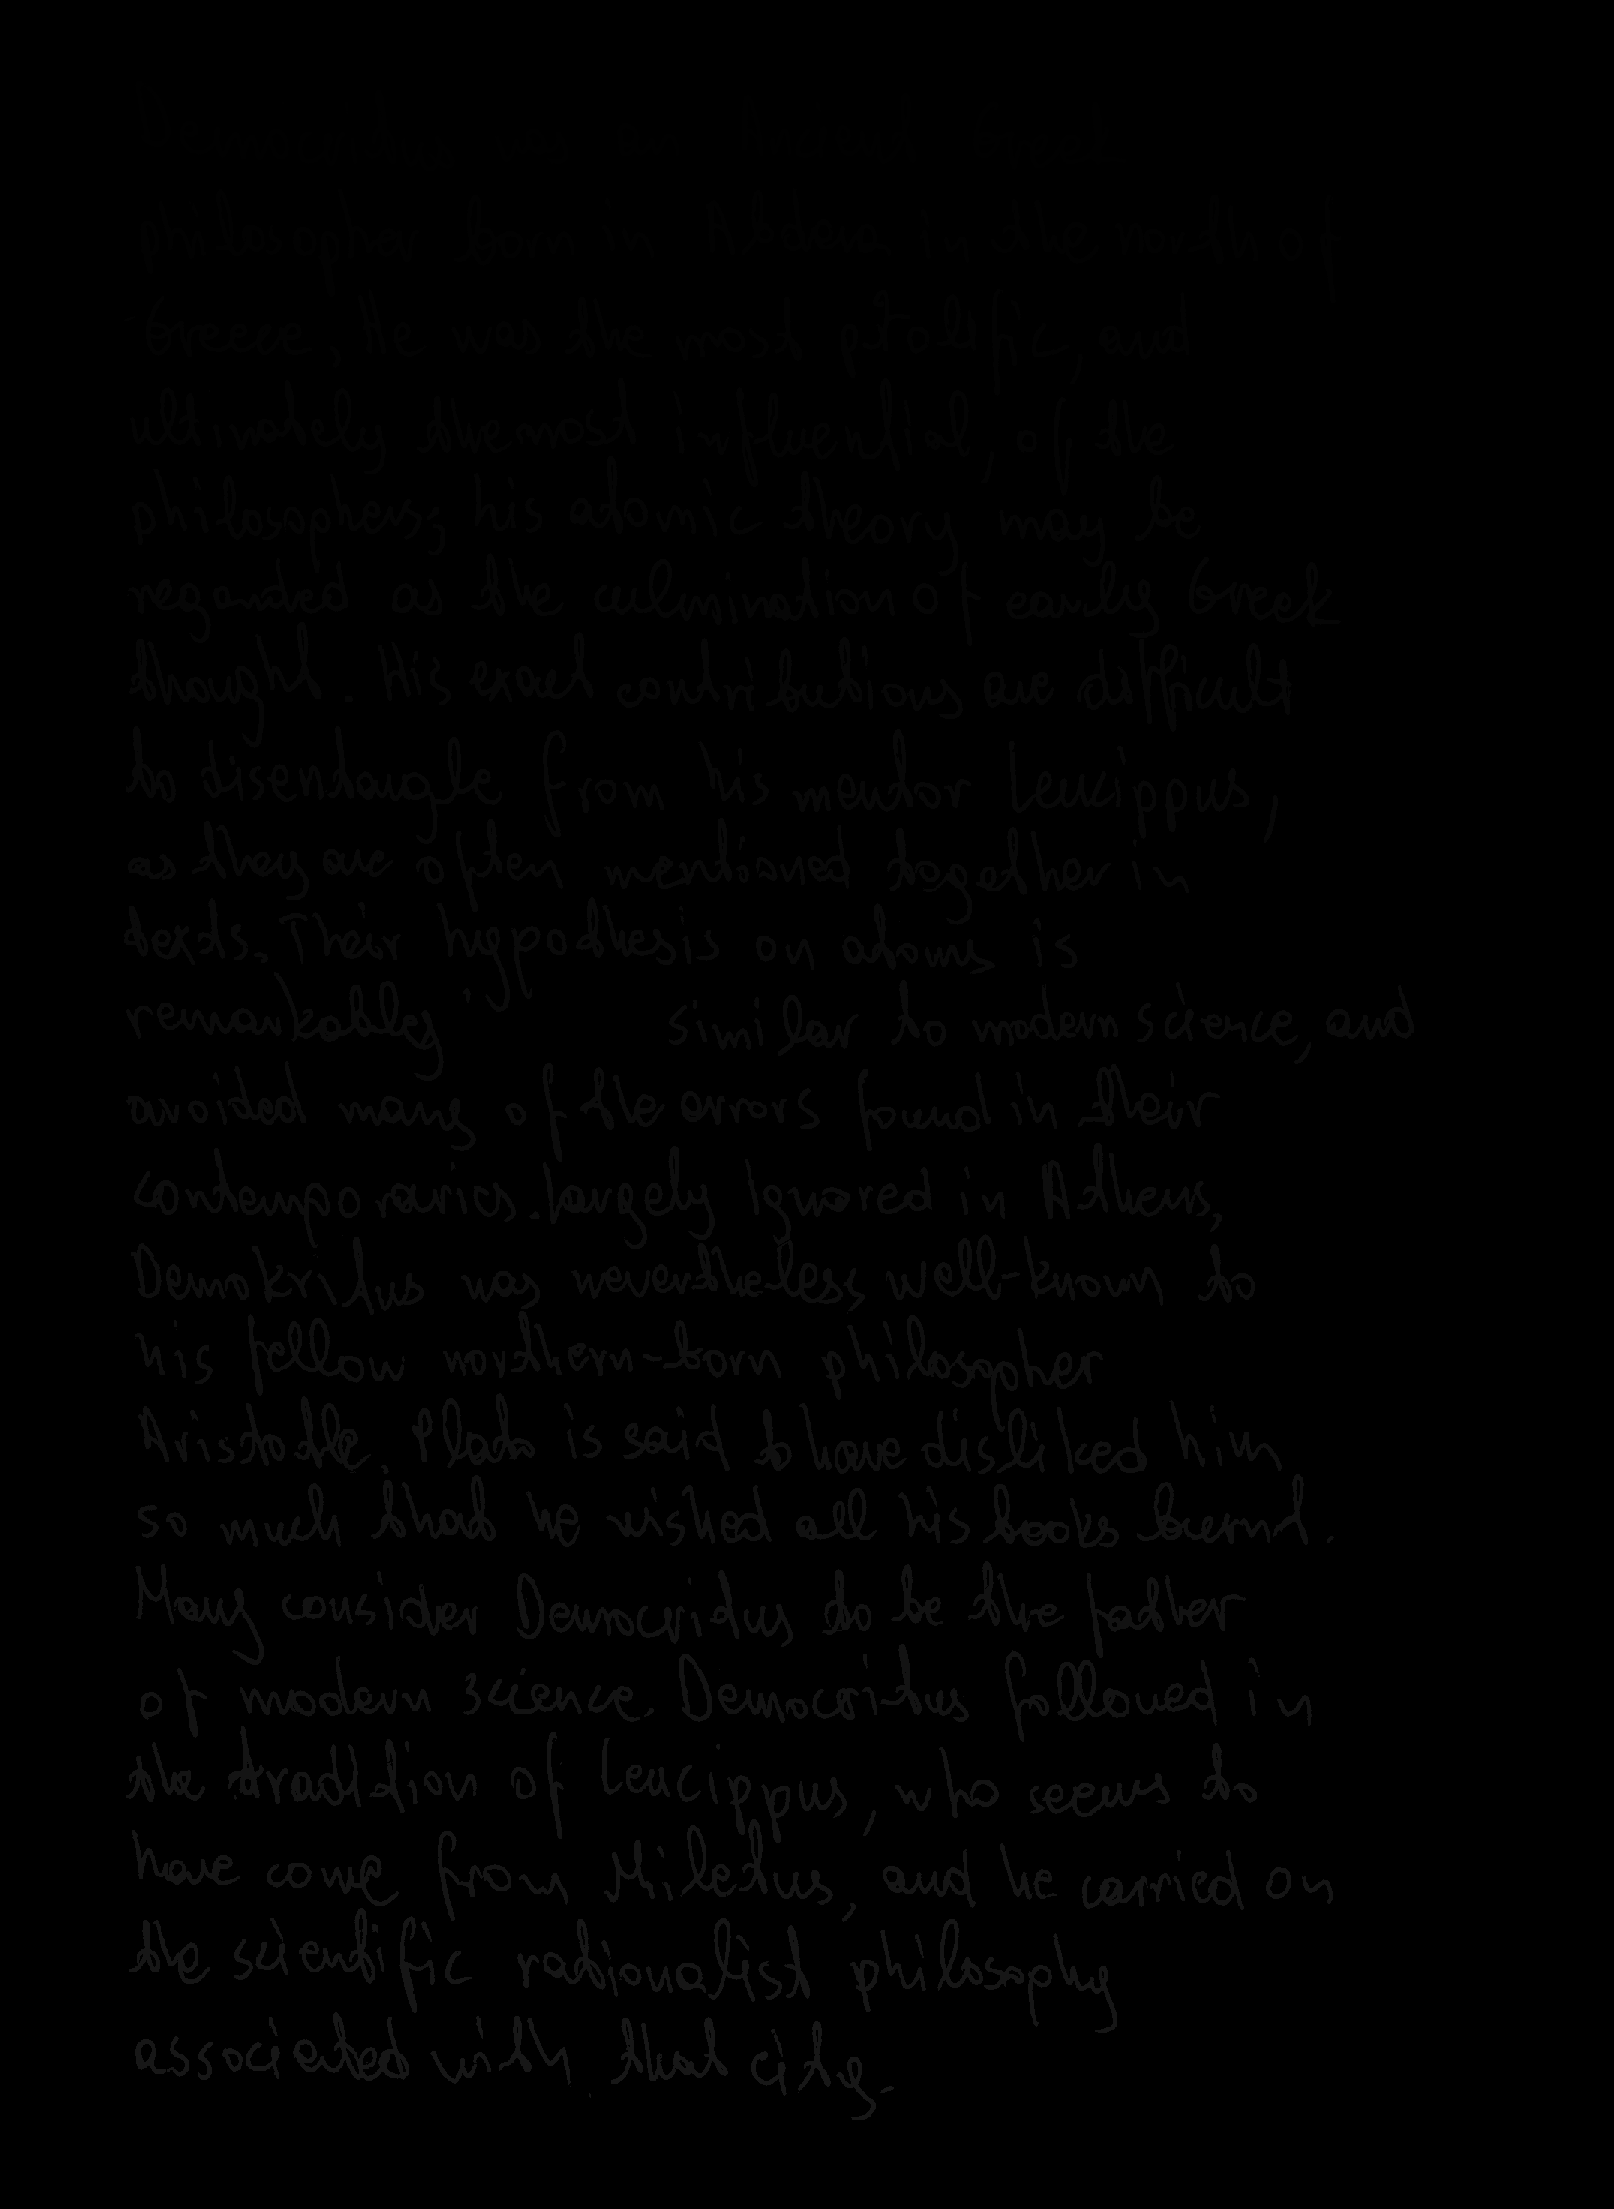 Democritus was an Ancient Greek
philosopher born in Abdera in the north of
Greece. He was the most prolific, and
ultimately the most influential, of the
philosophers; his atomic theory may be
regarded as the culmination of early Greek
thought. His exact contributions are difficult
to disentangle from his mentor Leucippus,
as they are often mentioned together in
texts. Their hypothesis on atoms is
remarkably similar to modern science, and
avoided many of the errors found in their
contemporaries. Largely ignored in Athens,
Demokritus was nevertheless well-known to
his fellow northern-born philosopher
Aristotle. Plato is said to have disliked him
so much that he wished all his books burnt.
Many consider Democritus to be the father
of modern science. Democritus followed in
the tradition of Leucippus, who seems to
have come from Miletus, and he carried on
the scientific rationalist philosophy
associated with that city.